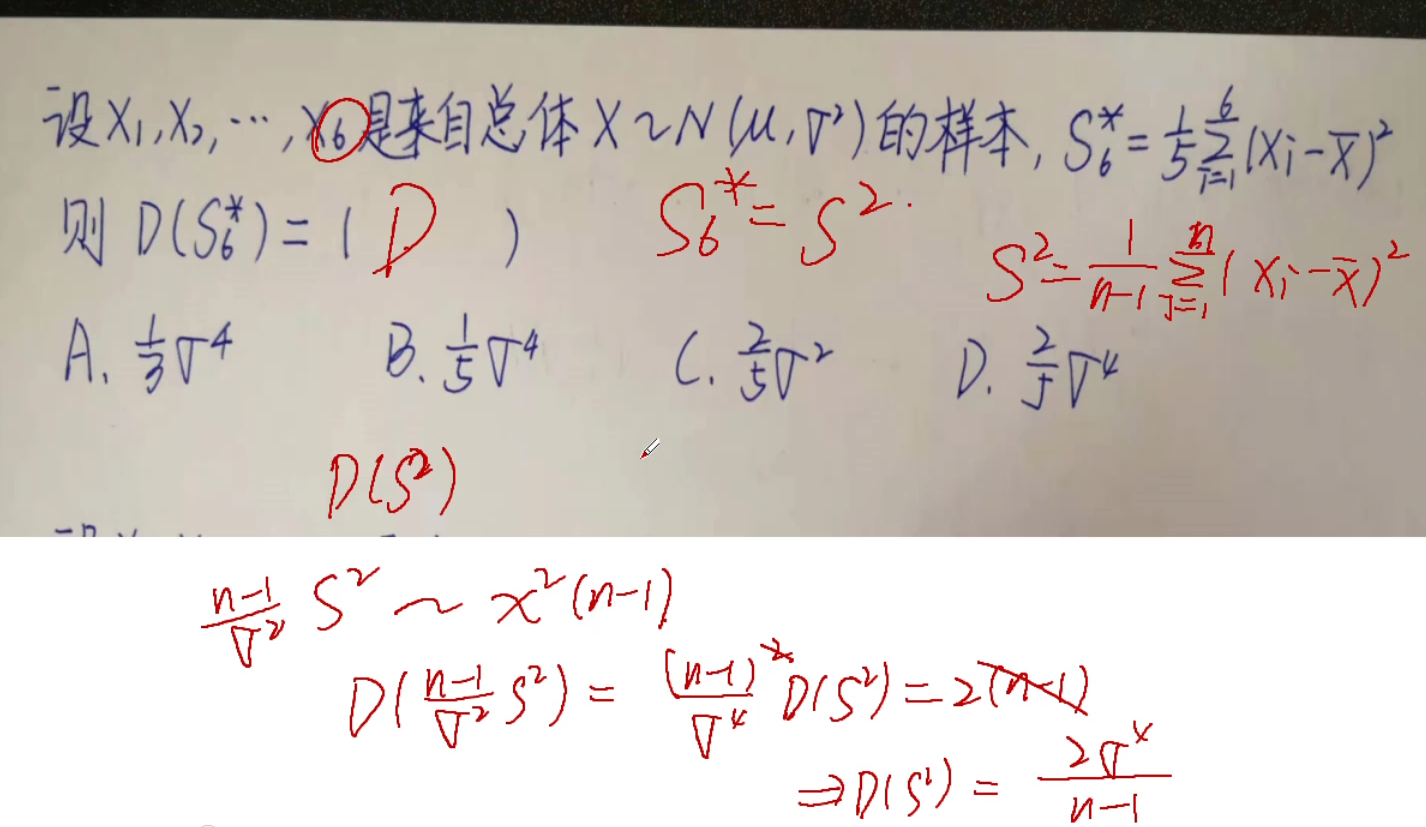 设X₁,X₂,…,X₆是来自总体X~N(μ,σ²)的样本, S₆* = 1/5 Σᵢ₌₁⁶ (Xᵢ-X̄)²
则 D(S₆*) = ( D )
S₆* = S².
S² = 1/(n-1) Σᵢ₌₁ⁿ (Xᵢ-X̄)²
A. 1/3 σ⁴ B. 1/5 σ⁴ C. 2/5 σ² D. 2/5 σ⁴
D(S²)
(n-1)/σ² S² ~ χ²(n-1)
D((n-1)/σ² S²) = (n-1)²/σ⁴ D(S²) = 2(n-1)
⇒ D(S²) = 2σ⁴/(n-1)